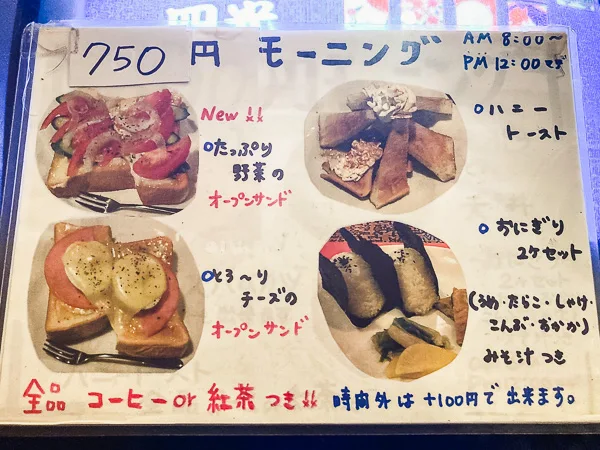 750円 モーニング
AM 8:00〜
PM 12:00まで
New!!
○たっぷり
野菜の
オープンサンド
○ハニー
トースト
○とろ〜り
チーズの
オープンサンド
○おにぎり
2ケセット
(うめ・たらこ・しゃけ・
こんぶ・おかか)
みそ汁つき
全品 コーヒー or 紅茶 つき!!
時間外は +100円で出来ます。